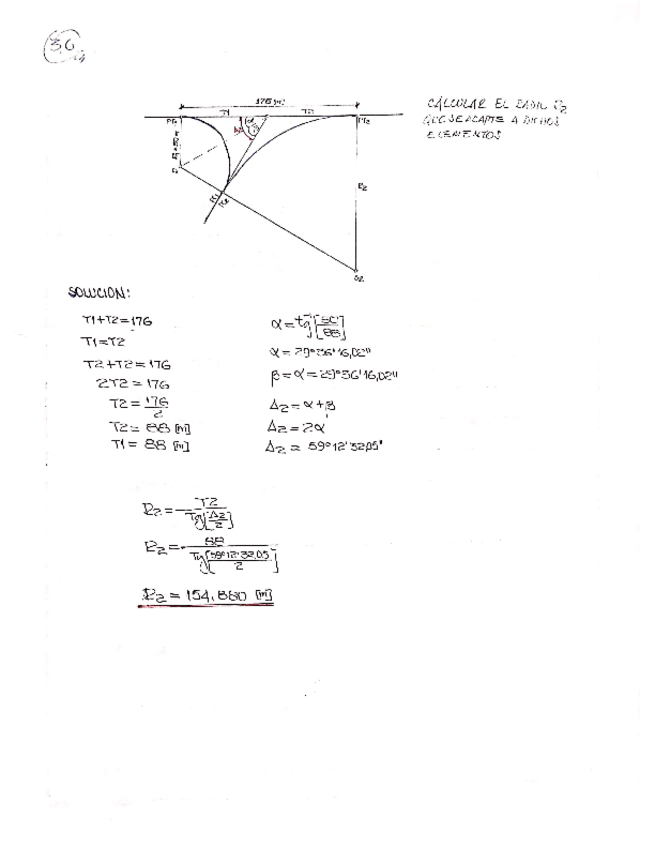 36
176 [m]
T1 T2
PT2
R2
O2
CALCULAR EL RADIO R2
QUE SE ADAPTE A DICHOS
ELEMENTOS
SOLUCION:
T1+T2=176
T1=T2
T2+T2=176
2T2=176
T2=176/2
T2=88 [m]
T1=88 [m]
α=tg⁻[50/88]
α=29°36'16,02"
β=α=29°36'16,02"
Δ2=α+β
Δ2=2α
Δ2=59°12'32,05"
R2=T2/Tg[Δ2/2]
R2=88/Tg[59°12'32,05/2]
R2=154,880 [m]